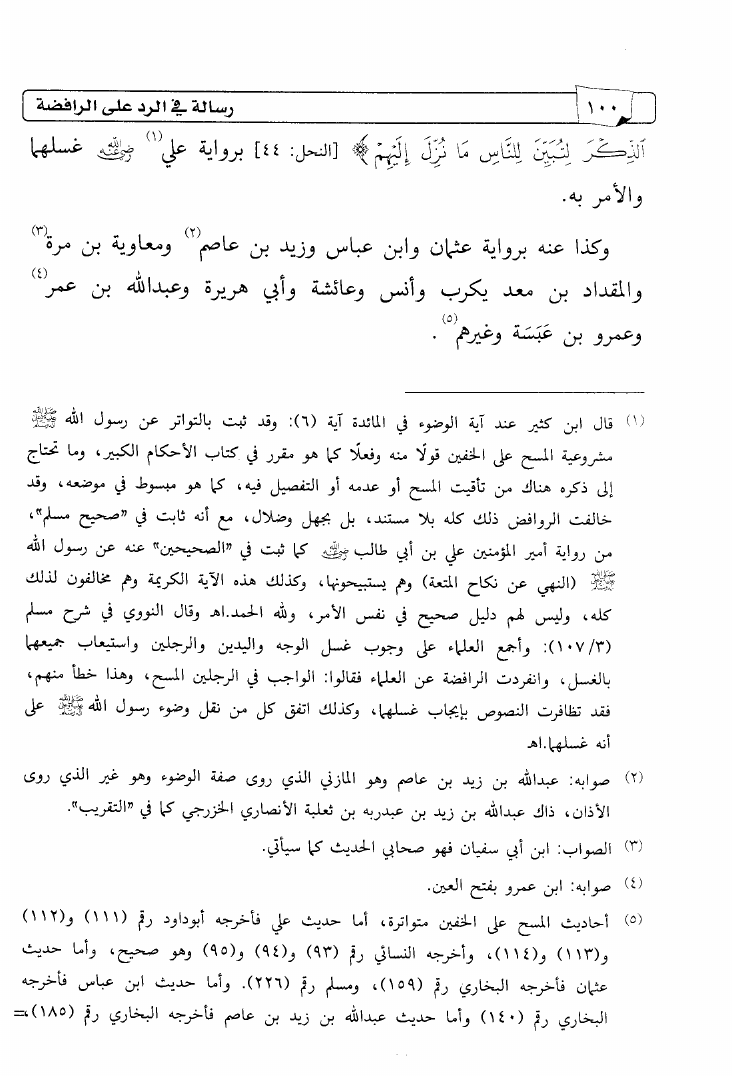 ١٠٠ رسالة في الرد على الرافضة
ٱلذِّكْرَ لِتُبَيِّنَ لِلنَّاسِ مَا نُزِّلَ إِلَيْهِمْ﴾ [النحل: ٤٤] برواية علي(١) رضي الله عنه غسلهما
والأمر به.
وكذا عنه برواية عثمان وابن عباس وزيد بن عاصم(٢) ومعاوية بن مرة(٣)
والمقداد بن معد يكرب وأنس وعائشة وأبي هريرة وعبدالله بن عمر(٤)
وعمرو بن عَبَسَة وغيرهم(٥).
(١) قال ابن كثير عند آية الوضوء في المائدة آية (٦): وقد ثبت بالتواتر عن رسول الله ﷺ
مشروعية المسح على الخفين قولًا منه وفعلًا كما هو مقرر في كتاب الأحكام الكبير، وما تحتاج
إلى ذكره هناك من تأقيت المسح أو عدمه أو التفصيل فيه، كما هو مبسوط في موضعه، وقد
خالفت الروافض ذلك كله بلا مستند، بل بجهل وضلال، مع أنه ثابت في «صحيح مسلم»،
من رواية أمير المؤمنين علي بن أبي طالب رضي الله عنه كما ثبت في «الصحيحين» عنه عن رسول الله
ﷺ (النهي عن نكاح المتعة) وهم يستبيحونها، وكذلك هذه الآية الكريمة وهم مخالفون لذلك
كله، وليس لهم دليل صحيح في نفس الأمر، ولله الحمد.اهـ وقال النووي في شرح مسلم
(٣/ ١٠٧): وأجمع العلماء على وجوب غسل الوجه واليدين والرجلين واستيعاب جميعهما
بالغسل، وانفردت الرافضة عن العلماء فقالوا: الواجب في الرجلين المسح، وهذا خطأ منهم،
فقد تظافرت النصوص بإيجاب غسلهما، وكذلك اتفق كل من نقل وضوء رسول الله ﷺ على
أنه غسلهما.اهـ
(٢) صوابه: عبدالله بن زيد بن عاصم وهو المازني الذي روى صفة الوضوء وهو غير الذي روى
الأذان، ذاك عبدالله بن زيد بن عبدربه بن ثعلبة الأنصاري الخزرجي كما في «التقريب».
(٣) الصواب: ابن أبي سفيان فهو صحابي الحديث كما سيأتي.
(٤) صوابه: ابن عمرو بفتح العين.
(٥) أحاديث المسح على الخفين متواترة، أما حديث علي فأخرجه أبوداود رقم (١١١) و(١١٢)
و(١١٣) و(١١٤)، وأخرجه النسائي رقم (٩٣) و(٩٤) و(٩٥) وهو صحيح، وأما حديث
عثمان فأخرجه البخاري رقم (١٥٩)، ومسلم رقم (٢٢٦). وأما حديث ابن عباس فأخرجه
البخاري رقم (١٤٠) وأما حديث عبدالله بن زيد بن عاصم فأخرجه البخاري رقم (١٨٥)،=